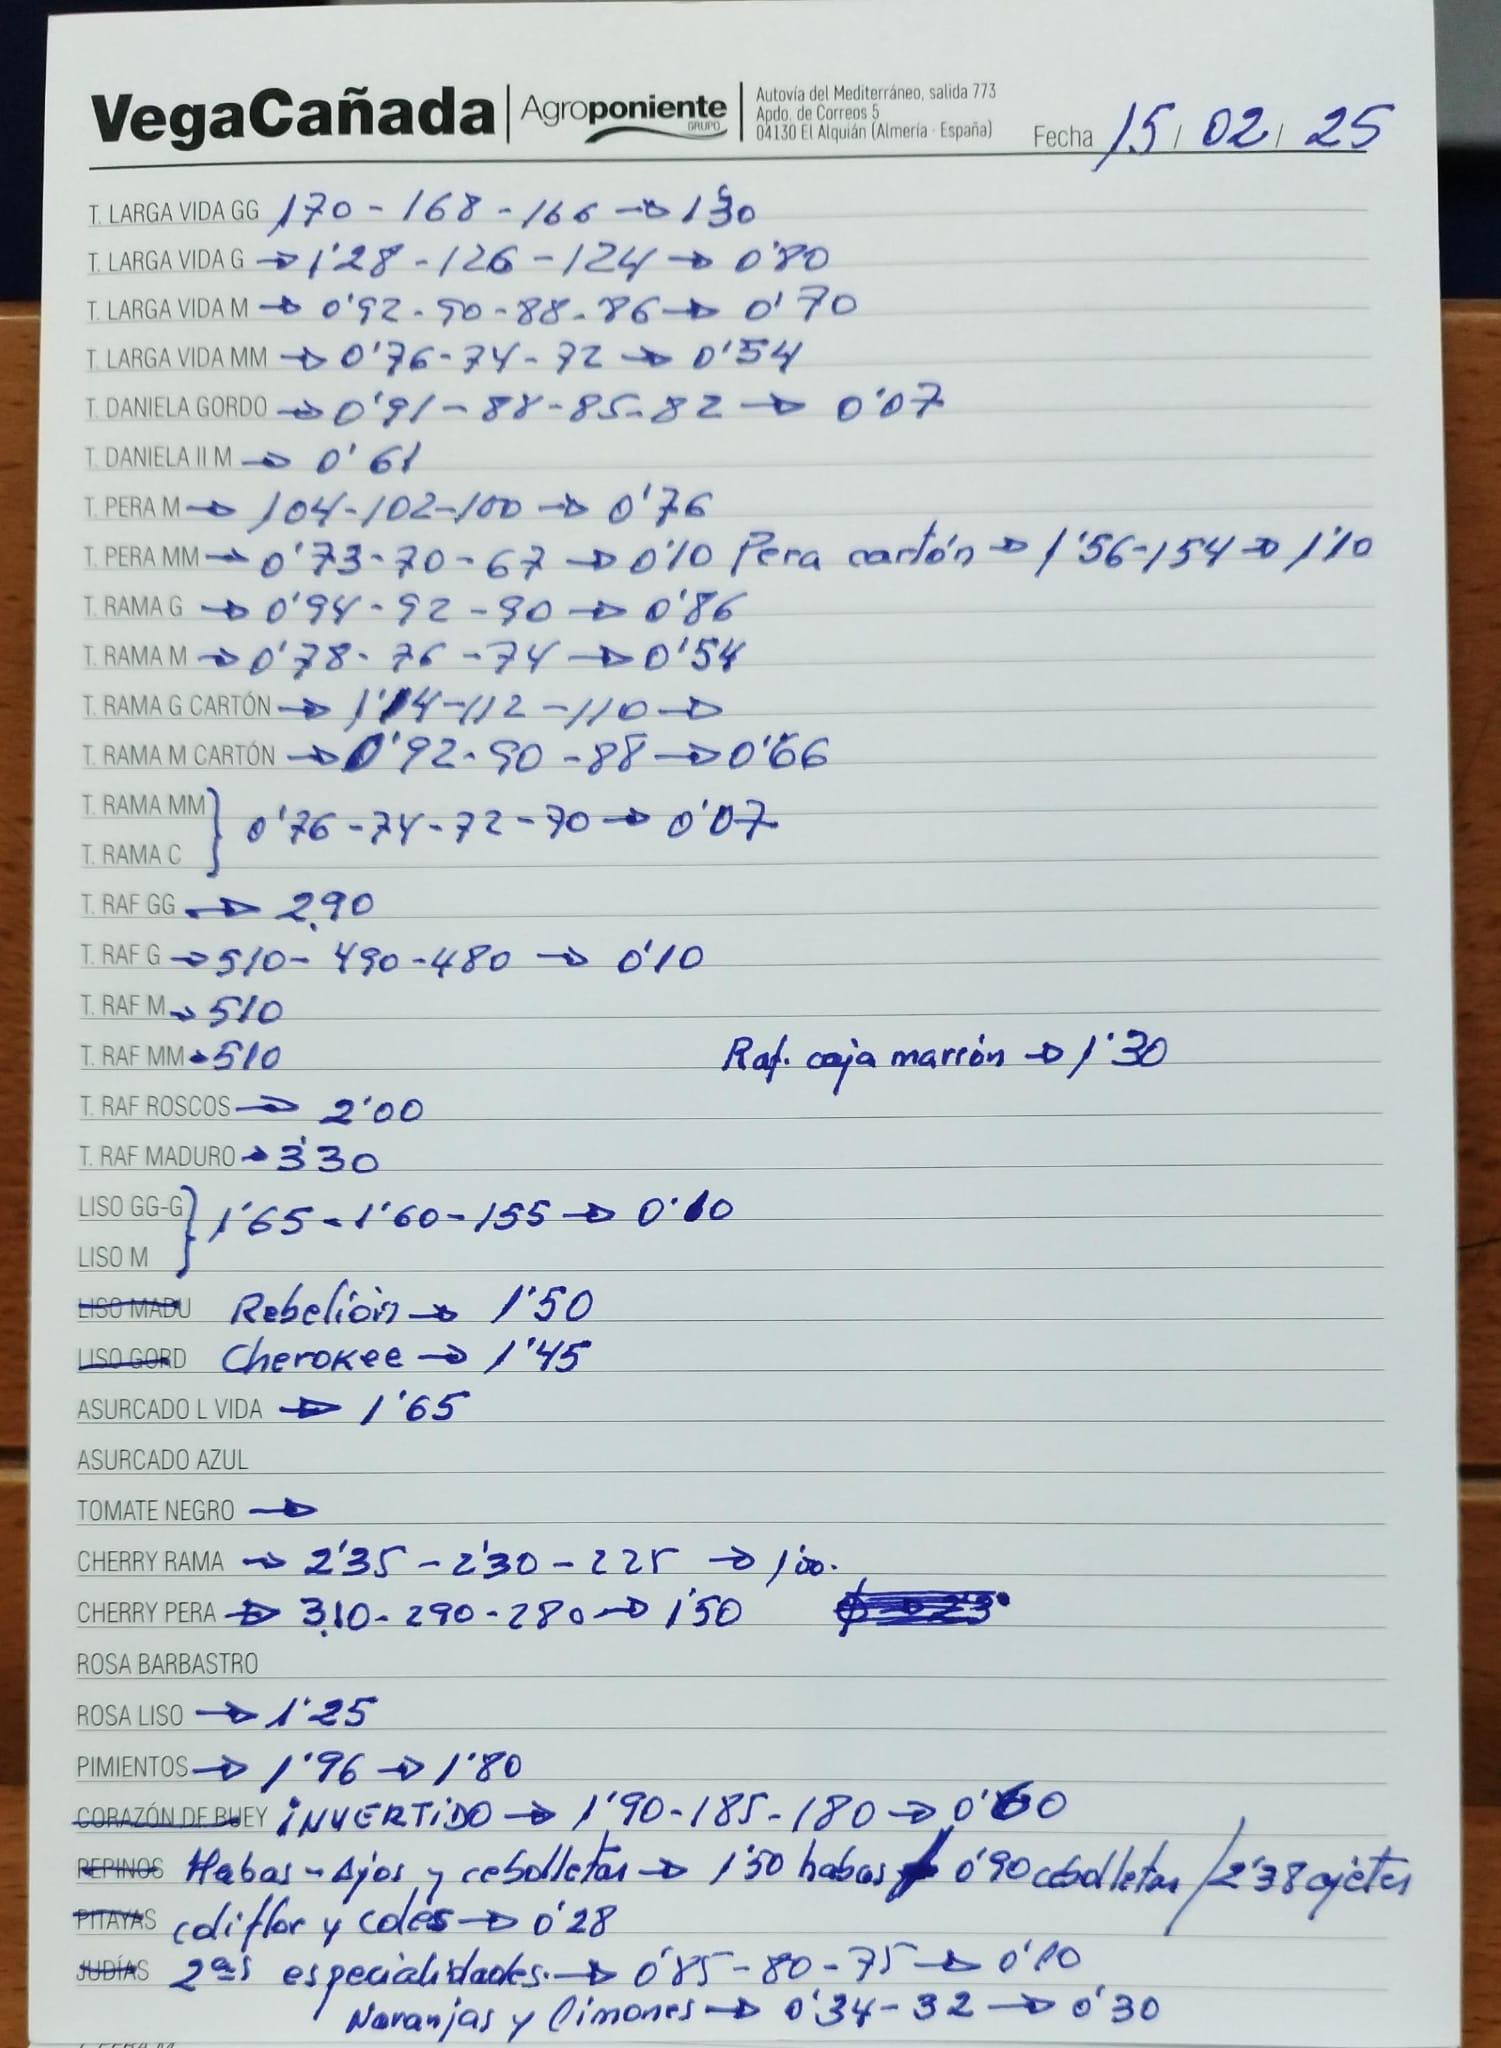 VegaCañada | Agroponiente GRUPO | Autovía del Mediterráneo, salida 773
Apdo. de Correos 5
04130 El Alquián (Almería - España)
Fecha 15/02/25
T. LARGA VIDA GG 170-168-166→1'30
T. LARGA VIDA G →1'28-126-124→0'80
T. LARGA VIDA M →0'92-90-88-86→0'70
T. LARGA VIDA MM →0'76-74-72→0'54
T. DANIELA GORDO →0'91-88-85-82→0'07
T. DANIELA II M →0'61
T. PERA M→104-102-100→0'76
T. PERA MM→0'73-70-67→0'10 Pera cartón→1'56-154→1'10
T. RAMA G →0'94-92-90→0'86
T. RAMA M →0'78-76-74→0'54
T. RAMA G CARTÓN→1'14-112-110→
T. RAMA M CARTÓN →0'92-90-88→0'66
T. RAMA MM } 0'76-74-72-70→0'07
T. RAMA C
T. RAF GG →2,90
T. RAF G →510-490-480→0'10
T. RAF M→510
T. RAF MM→510 Raf. caja marrón→1'30
T. RAF ROSCOS→2'00
T. RAF MADURO→3'30
LISO GG-G } 1'65-1'60-155→0'10
LISO M
LISO MADU Rebelión→1'50
LISO GORD Cherokee→1'45
ASURCADO L VIDA →1'65
ASURCADO AZUL
TOMATE NEGRO →
CHERRY RAMA →2'35-2'30-225→1'00.
CHERRY PERA →3,10-290-280→1'50
ROSA BARBASTRO
ROSA LISO →1'25
PIMIENTOS→1'96→1'80
CORAZÓN DE BUEY iNVERTiDO→1'90-185-180→0'60
PEPINOS Habas-Ajos y cebolletas→1'50 habas 0'90 cebolletas/2'38 ajetes
PITAYAS coliflor y coles→0'28
JUDÍAS 2as especialidades.→0'85-80-75→0'10
Naranjas y limones→0'34-32→0'30